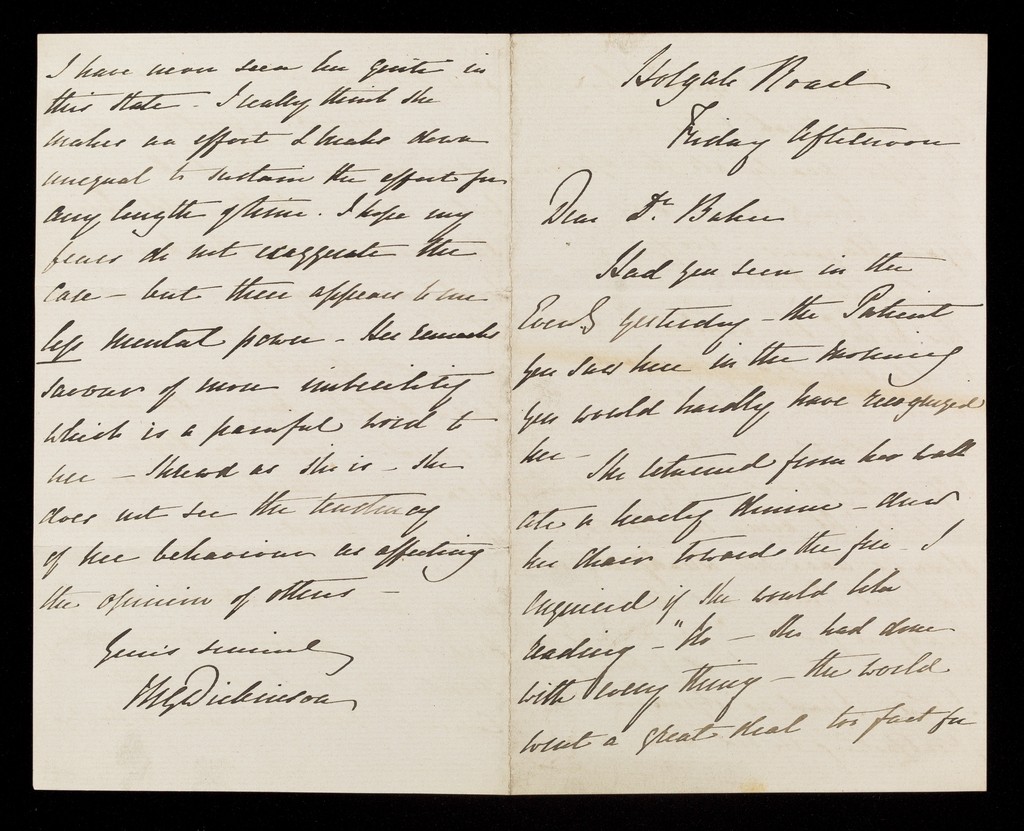 Holgate Road
Friday Afternoon
Dear Dr. Baker
Had you seen in the
Eveng yesterday - the Patient
you saw here in the Morning
you would hardly have recognized
her -
She returned from her walk
ate a hearty dinner - drew
her chair towards the fire - I
enquired if she would like
reading - "No - She had done
with every thing - the world
went a great deal too fast for
I have never seen her quite in
this state - I really think she
makes an effort & breaks down
unequal to sustain the effort for
any length of time. I hope my
fears do not exaggerate the
case - but there appears to me
less mental power - Her remarks
savour of more imbecility
which is a painful word to
use - Shrewd as she is - she
does not see the tendency
of her behaviour as affecting
the opinion of others -
Yours sincerely
Dickinson